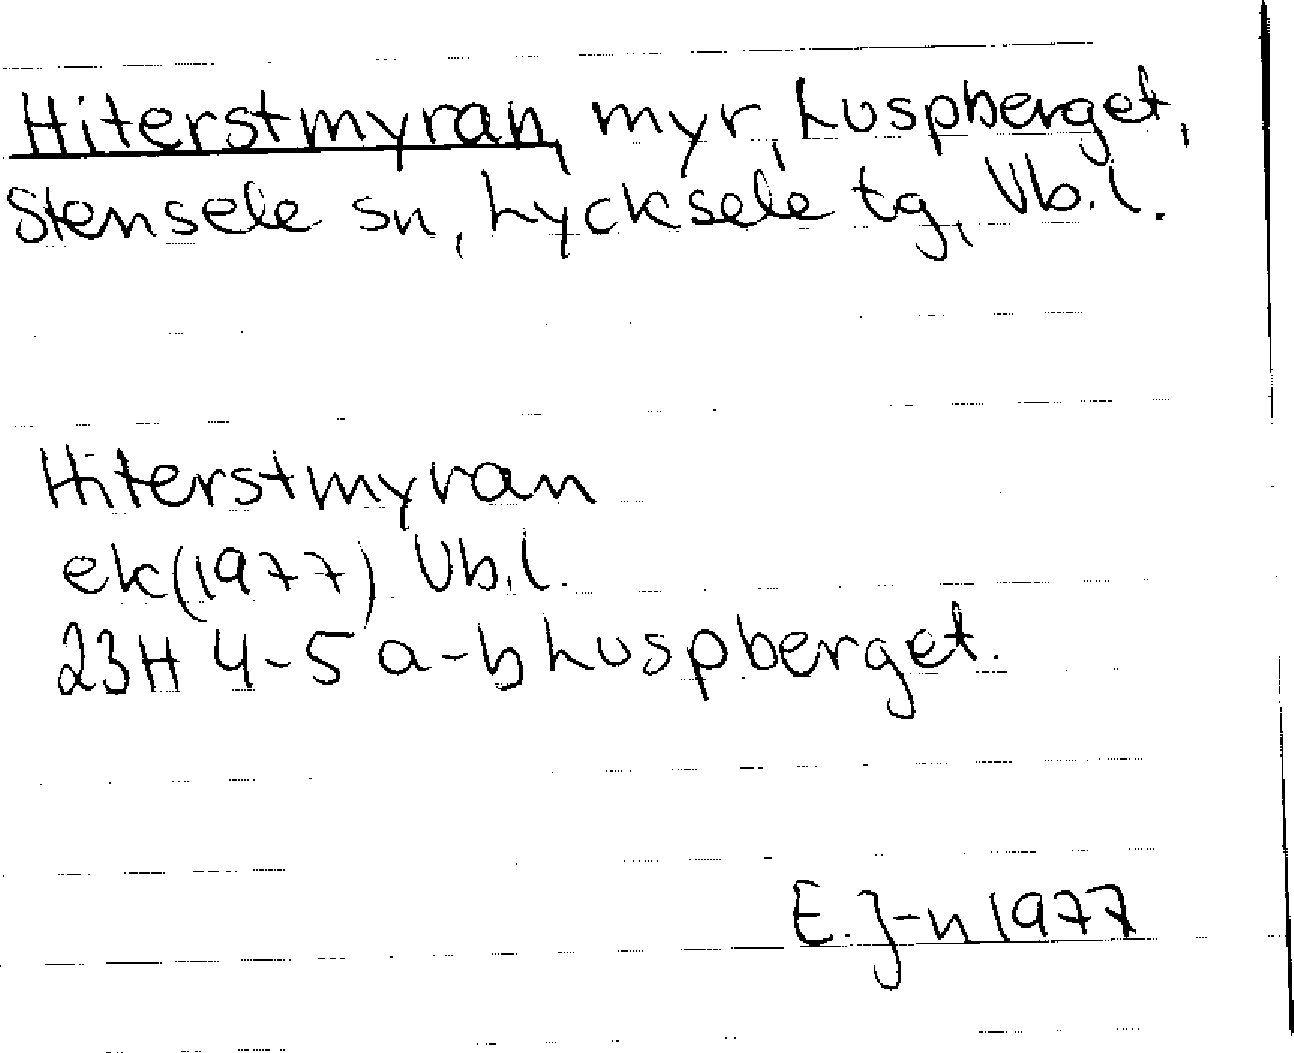 Hiterstmyran, myr, Luspberget,
Stensele sn, Lycksele tg, Vb.l.
Hiterstmyran
ek(1977) Vb.l.
23H 4-5 a-b Luspberget.
E.J-n 1977